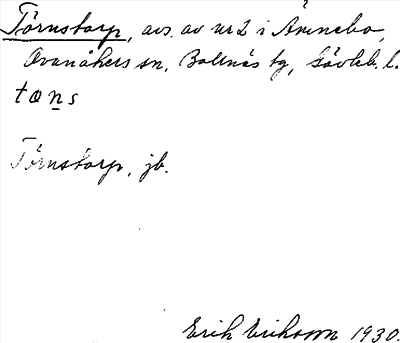 Törnstorp, avs. av nr 2 i Ännebo,
Ovanåkers sn, Bollnäs tg, Gävleb. l.
tɶns
Törnstorp, jb.
Erik Eriksson 1930.